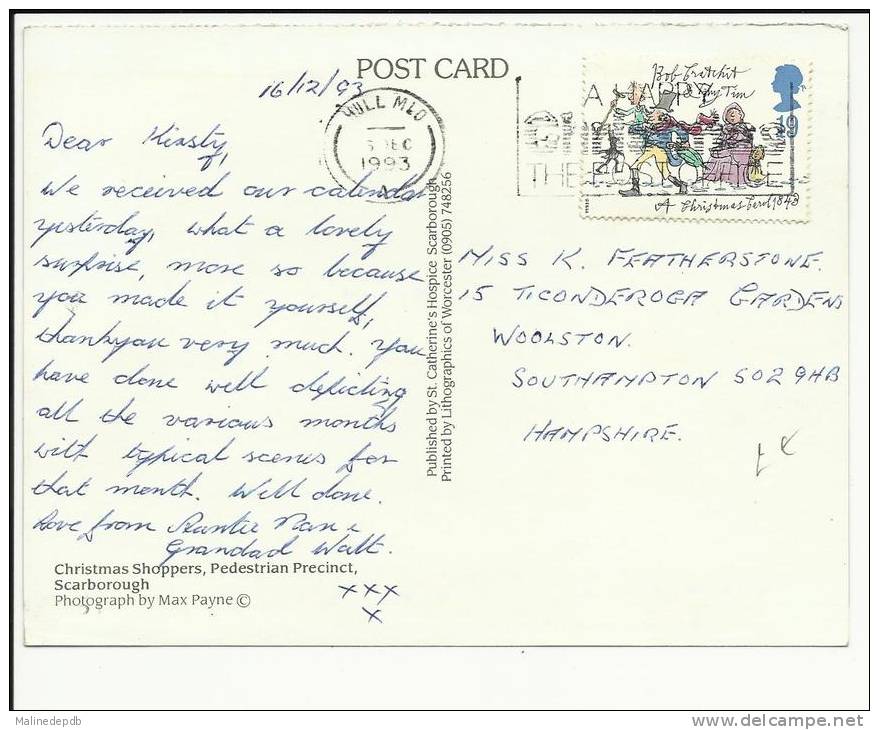 POST CARD
16/12/93
HULL MLO
DEC
1993
A
Bob Cratchit
& Tiny Tim
19
A HAPPY
THE POST OFFICE
A Christmas Carol 1843
Dear Kirsty,
We received our calendar
yesterday, what a lovely
surprise, more so because
you made it yourself,
thankyou very much. You
have done well depicting
all the various months
with typical scenes for
that month. Well done.
Love from Auntie Nan &
Grandad Walt.
xxx
x
Published by St. Catherine's Hospice Scarborough
Printed by Lithographics of Worcester (0905) 748256
MISS K. FEATHERSTONE.
15 TICONDEROGA GARDENS
WOOLSTON.
SOUTHAMPTON SO2 9HB
HAMPSHIRE.
Christmas Shoppers, Pedestrian Precinct,
Scarborough
Photograph by Max Payne ©
Malinedepdb
www.delcampe.net